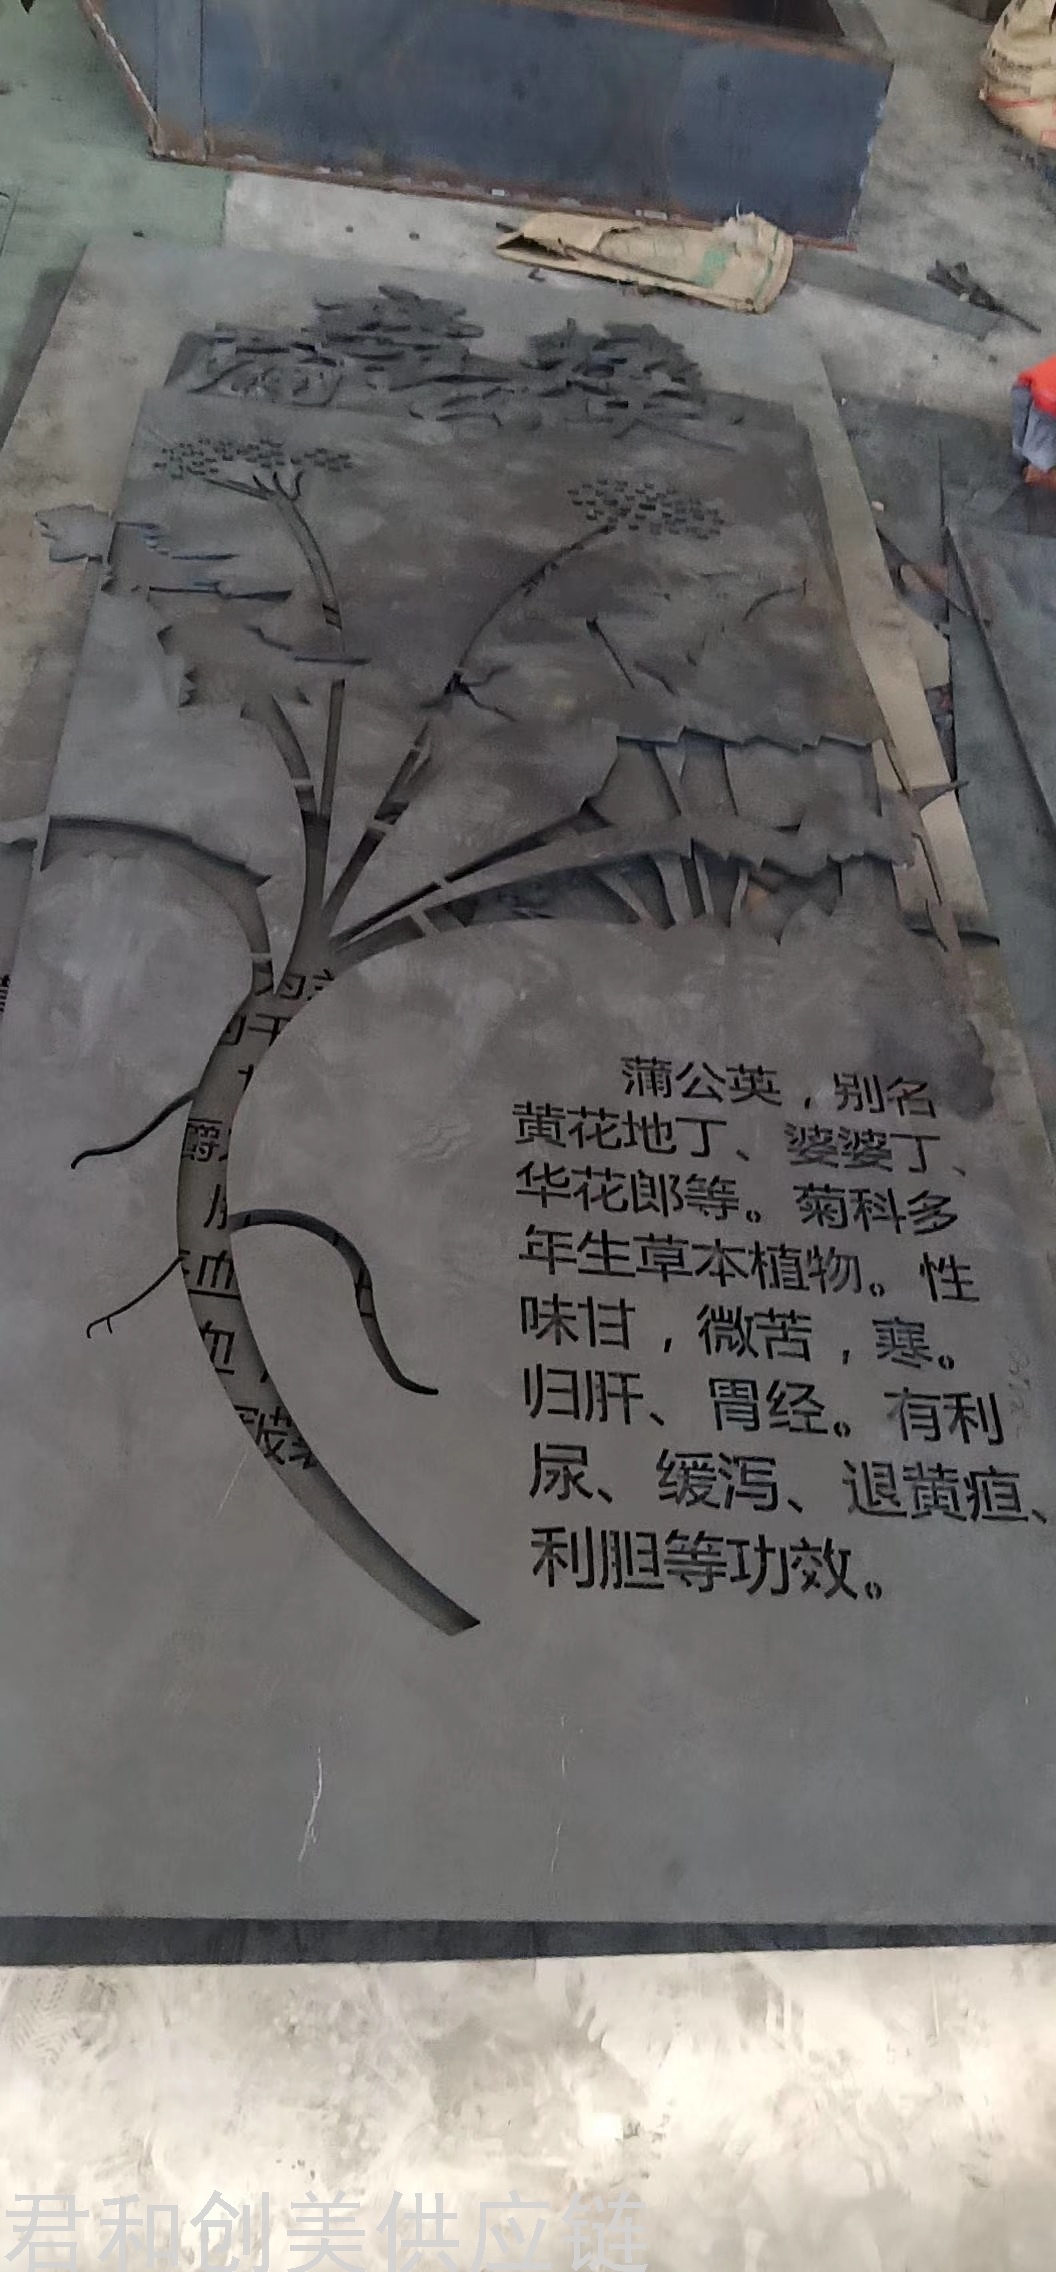 蒲公英，别名
黄花地丁、婆婆丁、
华花郎等。菊科多
年生草本植物。性
味甘，微苦，寒。
归肝、胃经。有利
尿、缓泻、退黄疸、
利胆等功效。
君和创美供应链